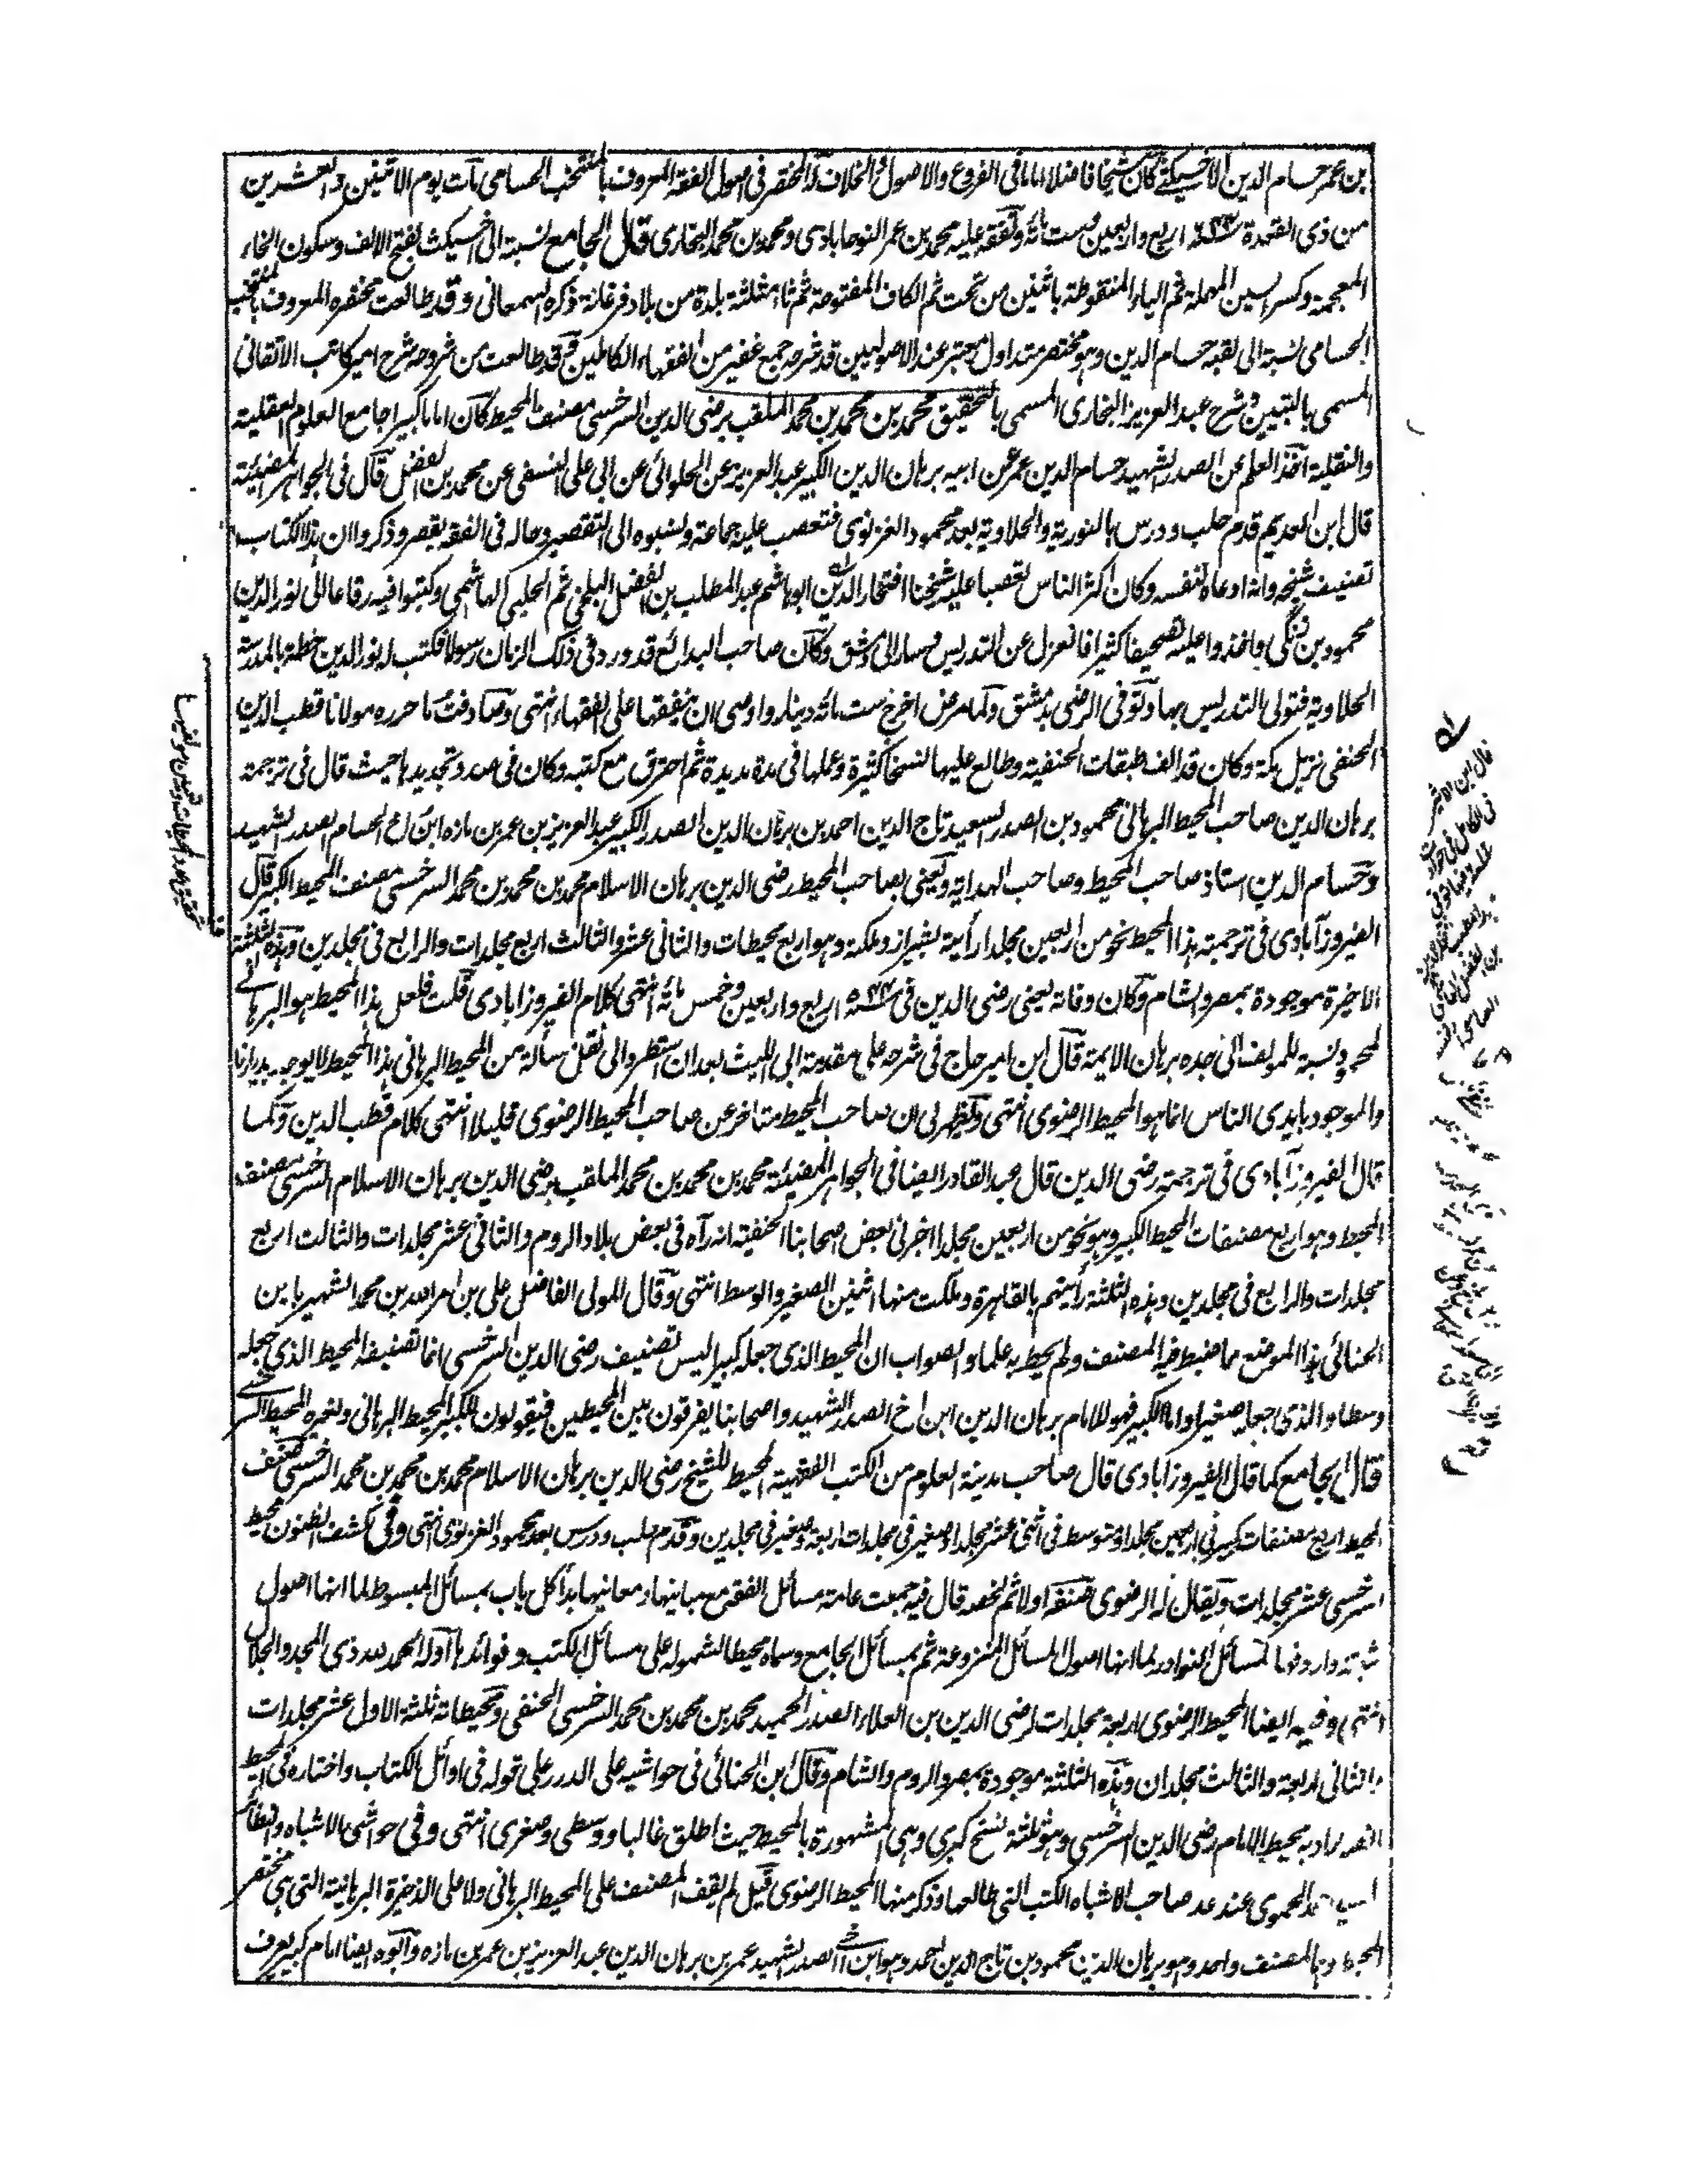 بن عمر حسام الدين الاخسيكثى كان شيخا فاضلا اماما فى الفروع والاصول والخلاف له المختصر فى اصول الفقه المعروف بالمنتخب الحسامى مات يوم الاثنين والعشرين
من ذى القعدة سنة ٦٤٤ اربع واربعين وست مائة وتفقه عليه محمد بن عمر النوحابادى ومحمد بن محمد البخارى قال الجامع نسبة الى اخسيكث بفتح الالف وسكون الخاء
المعجمة وكسر السين المهملة ثم الياء المنقوطة باثنين من تحت ثم الكاف المفتوحة ثم ثاء مثلثة بلدة من بلاد فرغانة ذكره السمعانى وقد طالعت مختصره المعروف بالمنتخب
الحسامى نسبة الى لقبه حسام الدين وهو مختصر متداول معتبر عند الاصوليين قد شرحه جمع غفير من الفقهاء الكاملين وقد طالعت من شروحه شرح امير كاتب الاتقانى
المسمى بالتبيين وشرح عبد العزيز البخارى المسمى بالتحقيق محمد بن محمد بن محمد الملقب برضى الدين السرخسى مصنف المحيط كان اماما كبيرا جامع العلوم العقلية
والنقلية اخذ العلم عن الصدر الشهيد حسام الدين عمر عن ابيه برهان الدين الكبير عبد العزيز عن الحلوائى عن ابى على النسفى عن محمد بن الفضل قال فى الجواهر المضيئة
قال ابن العديم قدم حلب ودرس بالنورية والحلاوية بعد محمود الغزنوى فتعصب عليه جماعة ونسبوه الى التقصير وحاله فى الفقه يقصر وذكروا ان هذا الكتاب
تصنيف شيخه وانه ادعاه لنفسه وكان اكثر الناس تعصبا عليه شيخنا افتخار الدين ابو هاشم عبد المطلب بن الفضل البلخى ثم الحلبى الهاشمى وكتبوا فيه رقاعا الى نور الدين
محمود بن زنگى واخذوا عليه تصحيفا كثيرا فانعزل عن التدريس وسار الى دمشق وكان صاحب البدائع قد ورد فى ذلك الزمان رسولا فكتب له نور الدين خطه بالمدرسة
الحلاوية فتولى التدريس بها وتوفى الرضى بدمشق ولما مرض اخرج ست مائة دينار واوصى ان ينفقها على الفقهاء انتهى وصادفت ما حرره مولانا قطب الدين
الحنفى نزيل مكة وكان قد الف طبقات الحنفية وطالع عليها نسخا كثيرة وعملها فى مدة مديدة ثم احترق مع كتبه وكان فى صدد تجديدها حيث قال فى ترجمة
برهان الدين صاحب المحيط البرهانى محمود بن الصدر السعيد تاج الدين احمد بن برهان الدين الصدر الكبير عبد العزيز بن عمر بن مازه ابن اخ الحسام الصدر الشهيد
وحسام الدين استاذ صاحب المحيط وصاحب الهداية ويعنى بصاحب المحيط رضى الدين برهان الاسلام محمد بن محمد بن محمد السرخسى مصنف المحيط الكبير قال
الفيروزآبادى فى ترجمته هذا المحيط نحو من اربعين مجلدا رأيته بشيراز وملكته وهو اربع محيطات والثانى عشر والثالث اربع مجلدات والرابع فى مجلدين وهذه الثلثة
الاخيرة موجودة بمصر والشام وكان وفاته يعنى رضى الدين فى سنة ٥٤٤ اربع واربعين وخمس مائة انتهى كلام الفيروزابادى قلت فلعل هذا المحيط هو البرهانى
لمحمود نسبة للمؤلف الى جده برهان الايمة قال ابن امير حاج فى شرحه على مقدمة ابى الليث بعد ان استطر والى نقل مسألة من المحيط البرهانى هذا المحيط لا يوجد بديارنا
والموجود بايدى الناس انما هو المحيط الرضوى انتهى ويظهر لى ان صاحب المحيط متاخر عن صاحب المحيط الرضوى قليلا انتهى كلام قطب الدين وكما
قال الفيروزآبادى فى ترجمة رضى الدين قال عبد القادر ايضا فى الجواهر المضيئة محمد بن محمد بن محمد الملقب برضى الدين برهان الاسلام السرخسى مصنف
المحيط وهو اربع مصنفات المحيط الكبير وهو نحو من اربعين مجلدا اخبرنى بعض اصحابنا الحنفية انه رآه فى بعض بلاد الروم والثانى عشر مجلدات والثالث اربع
مجلدات والرابع فى مجلدين وهذه الثلثة رأيتهم بالقاهرة وملكت منها اثنين الصغير والوسط انتهى وقال المولى الفاضل على بن امر الله بن محمد الشهير بابن
الحنائى هذا الموضع مما ضبط فيه المصنف ولم يحط به علما والصواب ان المحيط الذى جعله كبيرا ليس تصنيف رضى الدين السرخسى انما تصنيفه المحيط الذى جعله
وسطا والذى جعله صغيرا واما الكبير فهو للامام برهان الدين ابن اخ الصدر الشهيد واصحابنا يفرقون بين المحيطين فيقولون للكبير المحيط البرهانى ولغيره المحيط السرخسى
قال الجامع كما قال الفيروزآبادى قال صاحب مدينة العلوم من الكتب الفقهية المحيط للشيخ رضى الدين برهان الاسلام محمد بن محمد بن محمد السرخسى صنف
المحيط اربع مصنفات كبير فى اربعين مجلدا ومتوسط فى اثنى عشر مجلدا وصغير فى مجلدات اربعة وصغير فى مجلدين وقدم حلب ودرس بعد محمود الغزنوى انتهى وفى كشف الظنون محيط
السرخسى عشر مجلدات ويقال له الرضوى صنفه اولا ثم لخصه قال فيه جمعت عامة مسائل الفقه مع مبانيها ومعانيها بدأ كل باب بمسائل المبسوط لما انها اصول
واردفها بمسائل النوادر لما انها اصول المسائل المنزوعة ثم بمسائل الجامع وسماه محيطا لشموله على مسائل الكتب وفوائدها اوله الحمد لله ذى المجد والجلال
انتهى وفيه ايضا المحيط الرضوى اربعة مجلدات لرضى الدين بن العلاء الصدر الحميد محمد بن محمد بن محمد السرخسى الحنفى ومحيطاته ثلثة الاول عشر مجلدات
والثانى اربعة والثالث مجلدان وهذه الثلثة موجودة بمصر والروم والشام وقال ابن الحنائى فى حواشيه على الدرر على قوله فى اوائل الكتاب واختاره فى المحيط
المراد به محيط الامام رضى الدين السرخسى وهو ثلثة نسخ كبرى وهى المشهورة بالمحيط حيث اطلق غالبا ووسطى وصغرى انتهى وفى حواشى الاشباه والنظائر
الحموى عند عد صاحب الاشباه الكتب التى طالعها وذكر منها المحيط الرضوى قيل لم يقف المصنف على المحيط البرهانى ولا على الذخيرة البرهانية التى هى مختصر
المحيط المصنف واحد وهو برهان الدين محمود بن تاج الدين احمد وهو ابن اخى الصدر الشهيد عمر بن برهان الدين عبد العزيز بن عمر بن مازه وابوه ايضا امام كبير يعرف
قال ابن الاثير
فى الكامل فى